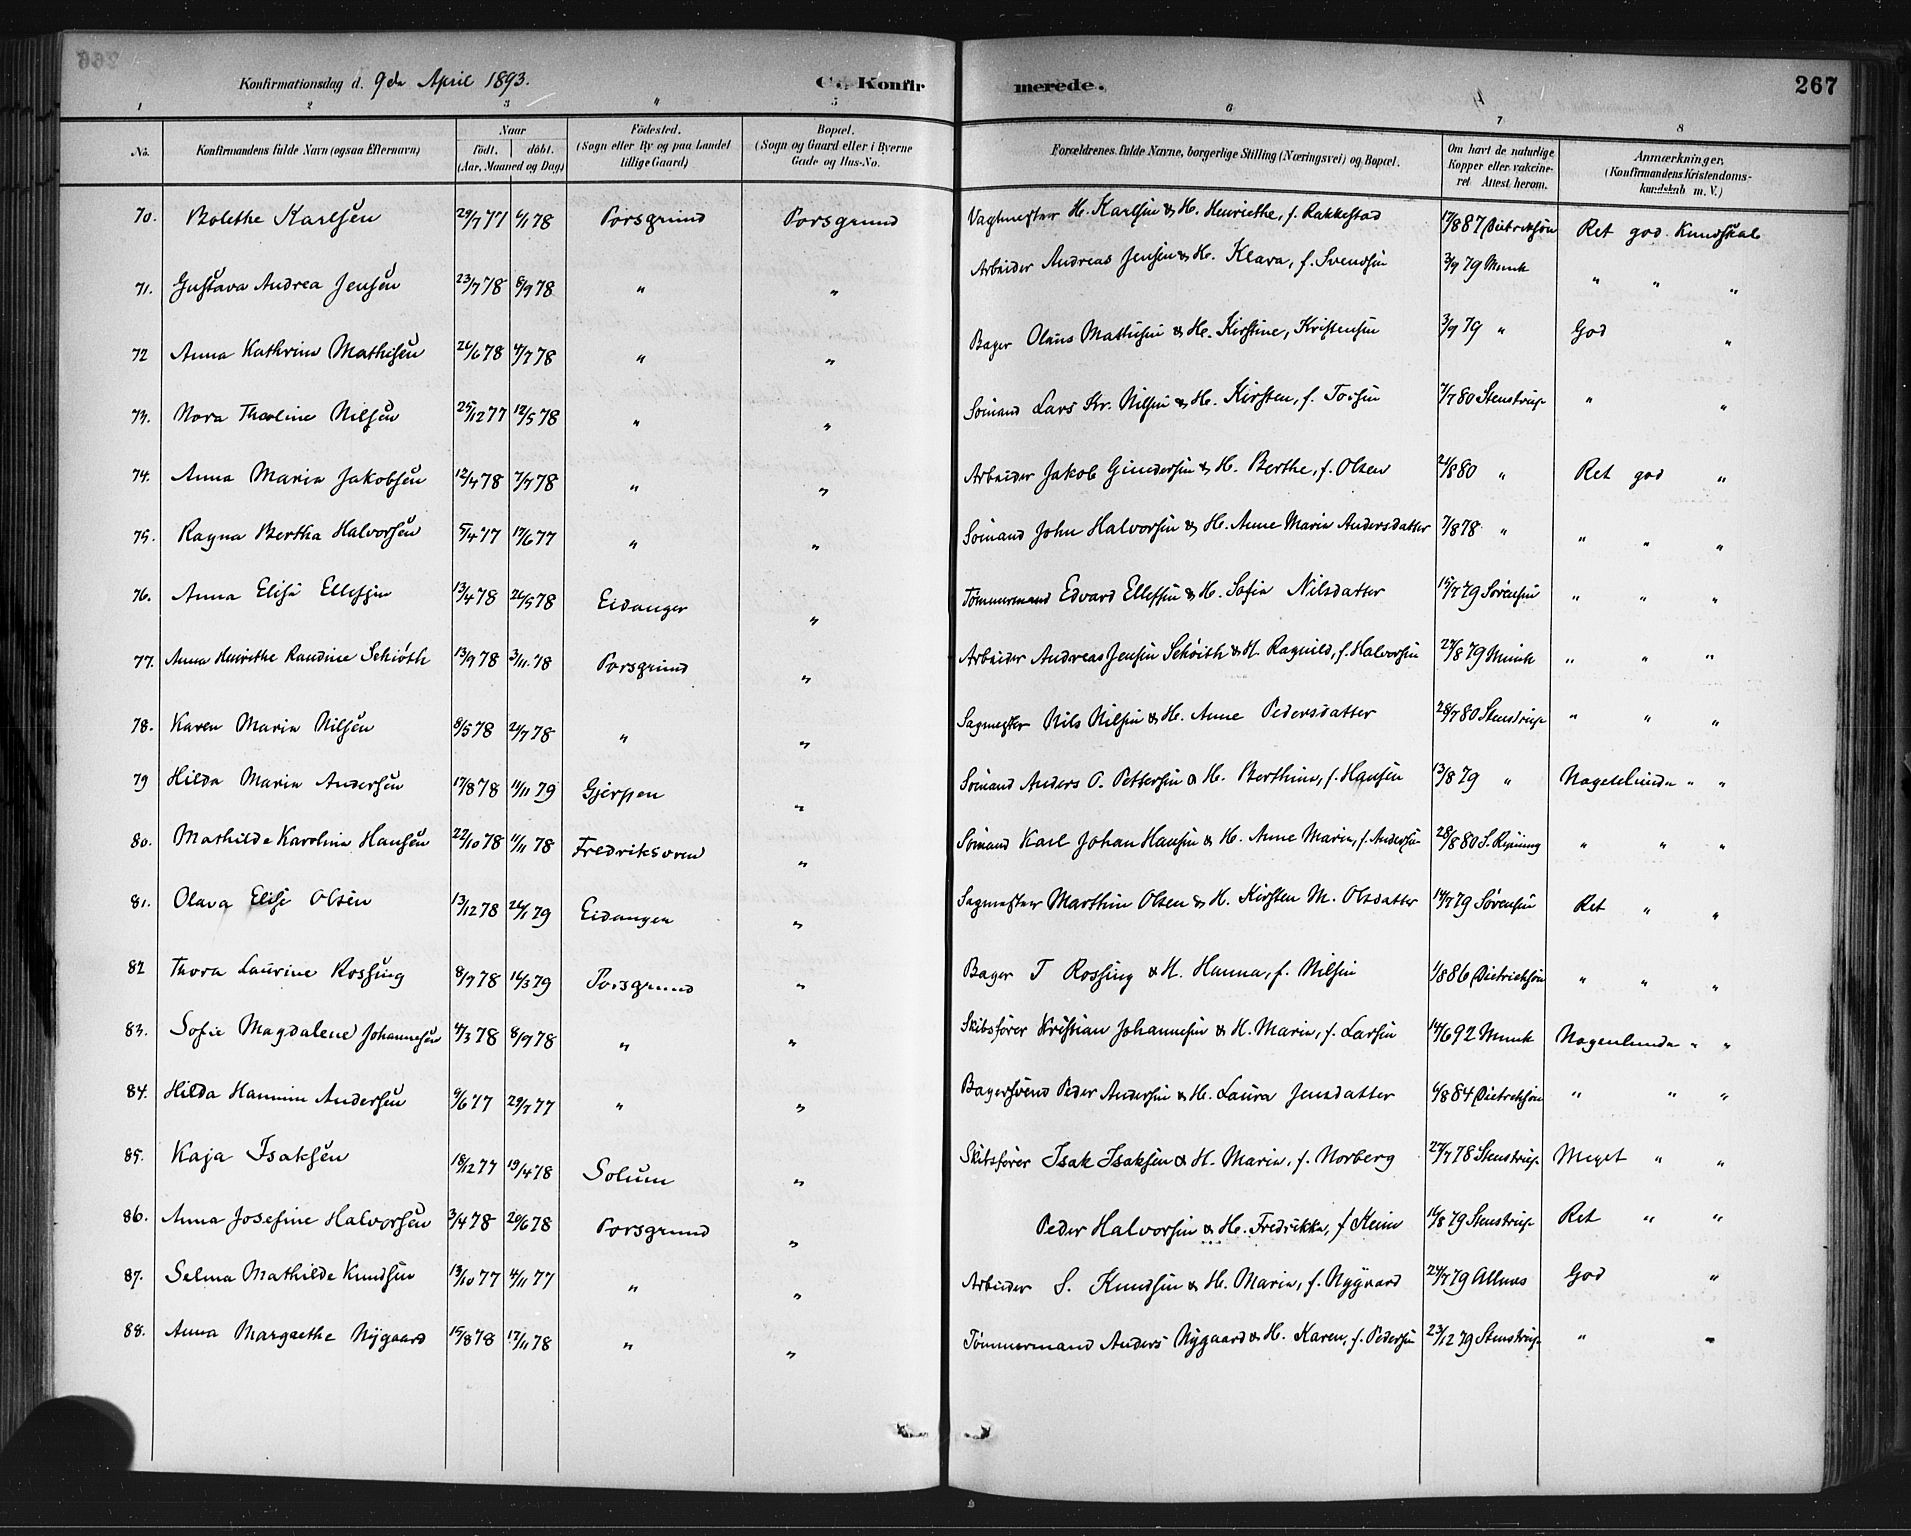 Konfirmationsdag d. 9de April 1893. C. Konfirmerede. 267
1 2 3 4 5 6 7 8
No. Konfirmandens fulde Navn (ogsaa Efternavn) Naar født. døbt. (Aar, Maaned og Dag) Fødested. (Sogn eller By og paa Landet tillige Gaard) Bopæl. (Sogn og Gaard eller i Byerne Gade og Hus-No. Forældrenes fulde Navne, borgerlige Stilling (Næringsvei) og Bopæl. Om havt de naturlige Kopper eller vakcineret Attest herom. Anmærkninger, (Konfirmandens Kristendomskundskab m. V.)
70. Bolethe Karlsen 29/7 77 6/1 78 Porsgrund Porsgrund Vagtmester H. Karlsen & H. Henriethe, f. Rakkestad 17/8 87 Dietrichson Ret god Kundskab
71. Gustava Andrea Jensen 23/7 78 8/9 78 " " Arbeider Andreas Jensen & H. Klava, f. Svendsen 3/9 79 Munk " " "
72 Anna Kathrine Mathisen 26/6 78 4/7 78 " " Bager Olaus Mathisen & H. Kirstine, Kristensen 3/9 79 " God "
73. Nora Tholine Nilsen 25/12 77 12/5 78 " " Sømand Lars Kr. Nilsen & H. Kirsten, f. Torsen 7/7 80 Stenstrup " "
74. Anna Maria Jakobsen 12/4 78 7/7 78 " " Arbeider Jakob Gundersen & H. Berthe, f. Olsen 21/8 80 " Ret god "
75. Ragna Bertha Halvorsen 5/4 77 17/6 77 " " Sømand John Halvorsen & H. Anne Marie Andersdatter 7/8 78 " " " "
76. Anna Elise Ellefsen 13/4 78 26/5 78 Eidanger " Tømmermand Edvard Ellefsen & H. Sofie Nilsdatter 15/7 79 Sørensen " " "
77. Anna Henrethe Randine Schiøth 13/9 78 3/11 78 Porsgrund " Arbeider Andreas Jensen Schøith & H. Ragnild, f. Halvorsen 27/8 79 Munk " " "
78. Karen Maria Nilsen 8/5 78 21/7 78 " " Sagmester Nils Nilsen & H. Anne Pedersdatter 28/7 80 Stenstrup " " "
79 Hilda Maria Andersen 17/8 78 11/11 79 Gjerpen " Sømand Anders O. Pettersen & H. Berthine, f. Hansen 13/8 79 " Nogetlunde " "
80. Mathilde Karoline Hansen 22/10 78 11/11 78 Fredriksvern " Sømand Karl Johan Hansen & H. Anne Marie, f. Andersen 28/8 80 " " "
81. Olava Elise Olsen 13/12 78 26/1 79 Eidanger " Sagmester Marthin Olsen & H. Kirsten M. Olsdatter 14/7 79 Sørensen Ret " "
82 Thora Laurine Rossing 8/7 78 16/3 79 Porsgrund " Bager T Rossing & H. Hanna, f. Nilsen 1/8 86 Dietrichson " " "
83. Sofie Magdalene Johannesen 4/3 78 8/9 78 " " Skibsfører Kristian Johannesen & H. Marie, f. Larsen 14/6 92 Munk Nogenlunde " "
84. Hilda Hannine Andersen 9/6 77 29/7 77 " " Bagersvend Peder Andersen & H. Laura Jensdatter 6/8 84 Dietrichson " " "
85. Kaja Isaksen 18/12 77 19/4 78 Solum " Skibsfører Isak Isaksen & H. Marie, f. Norberg 27/7 78 Stenstrup Meget " "
86. Anna Josefine Halvorsen 3/4 78 20/6 78 Porsgrund " Peder Halvorsen & H. Fredrikke, f Stein 16/8 79 Stenstrup Ret " "
87. Selma Mathilde Knudsen 13/10 77 4/11 77 " " Arbeider S. Knudsen & H. Marie, f. Nygaard 24/7 79 God "
88. Anna Margrethe Nygaard 15/8 78 17/11 78 " " Tømmermand Anders Nygaard & H. Karen, f. Pedersen 23/12 79 Stenstrup " "